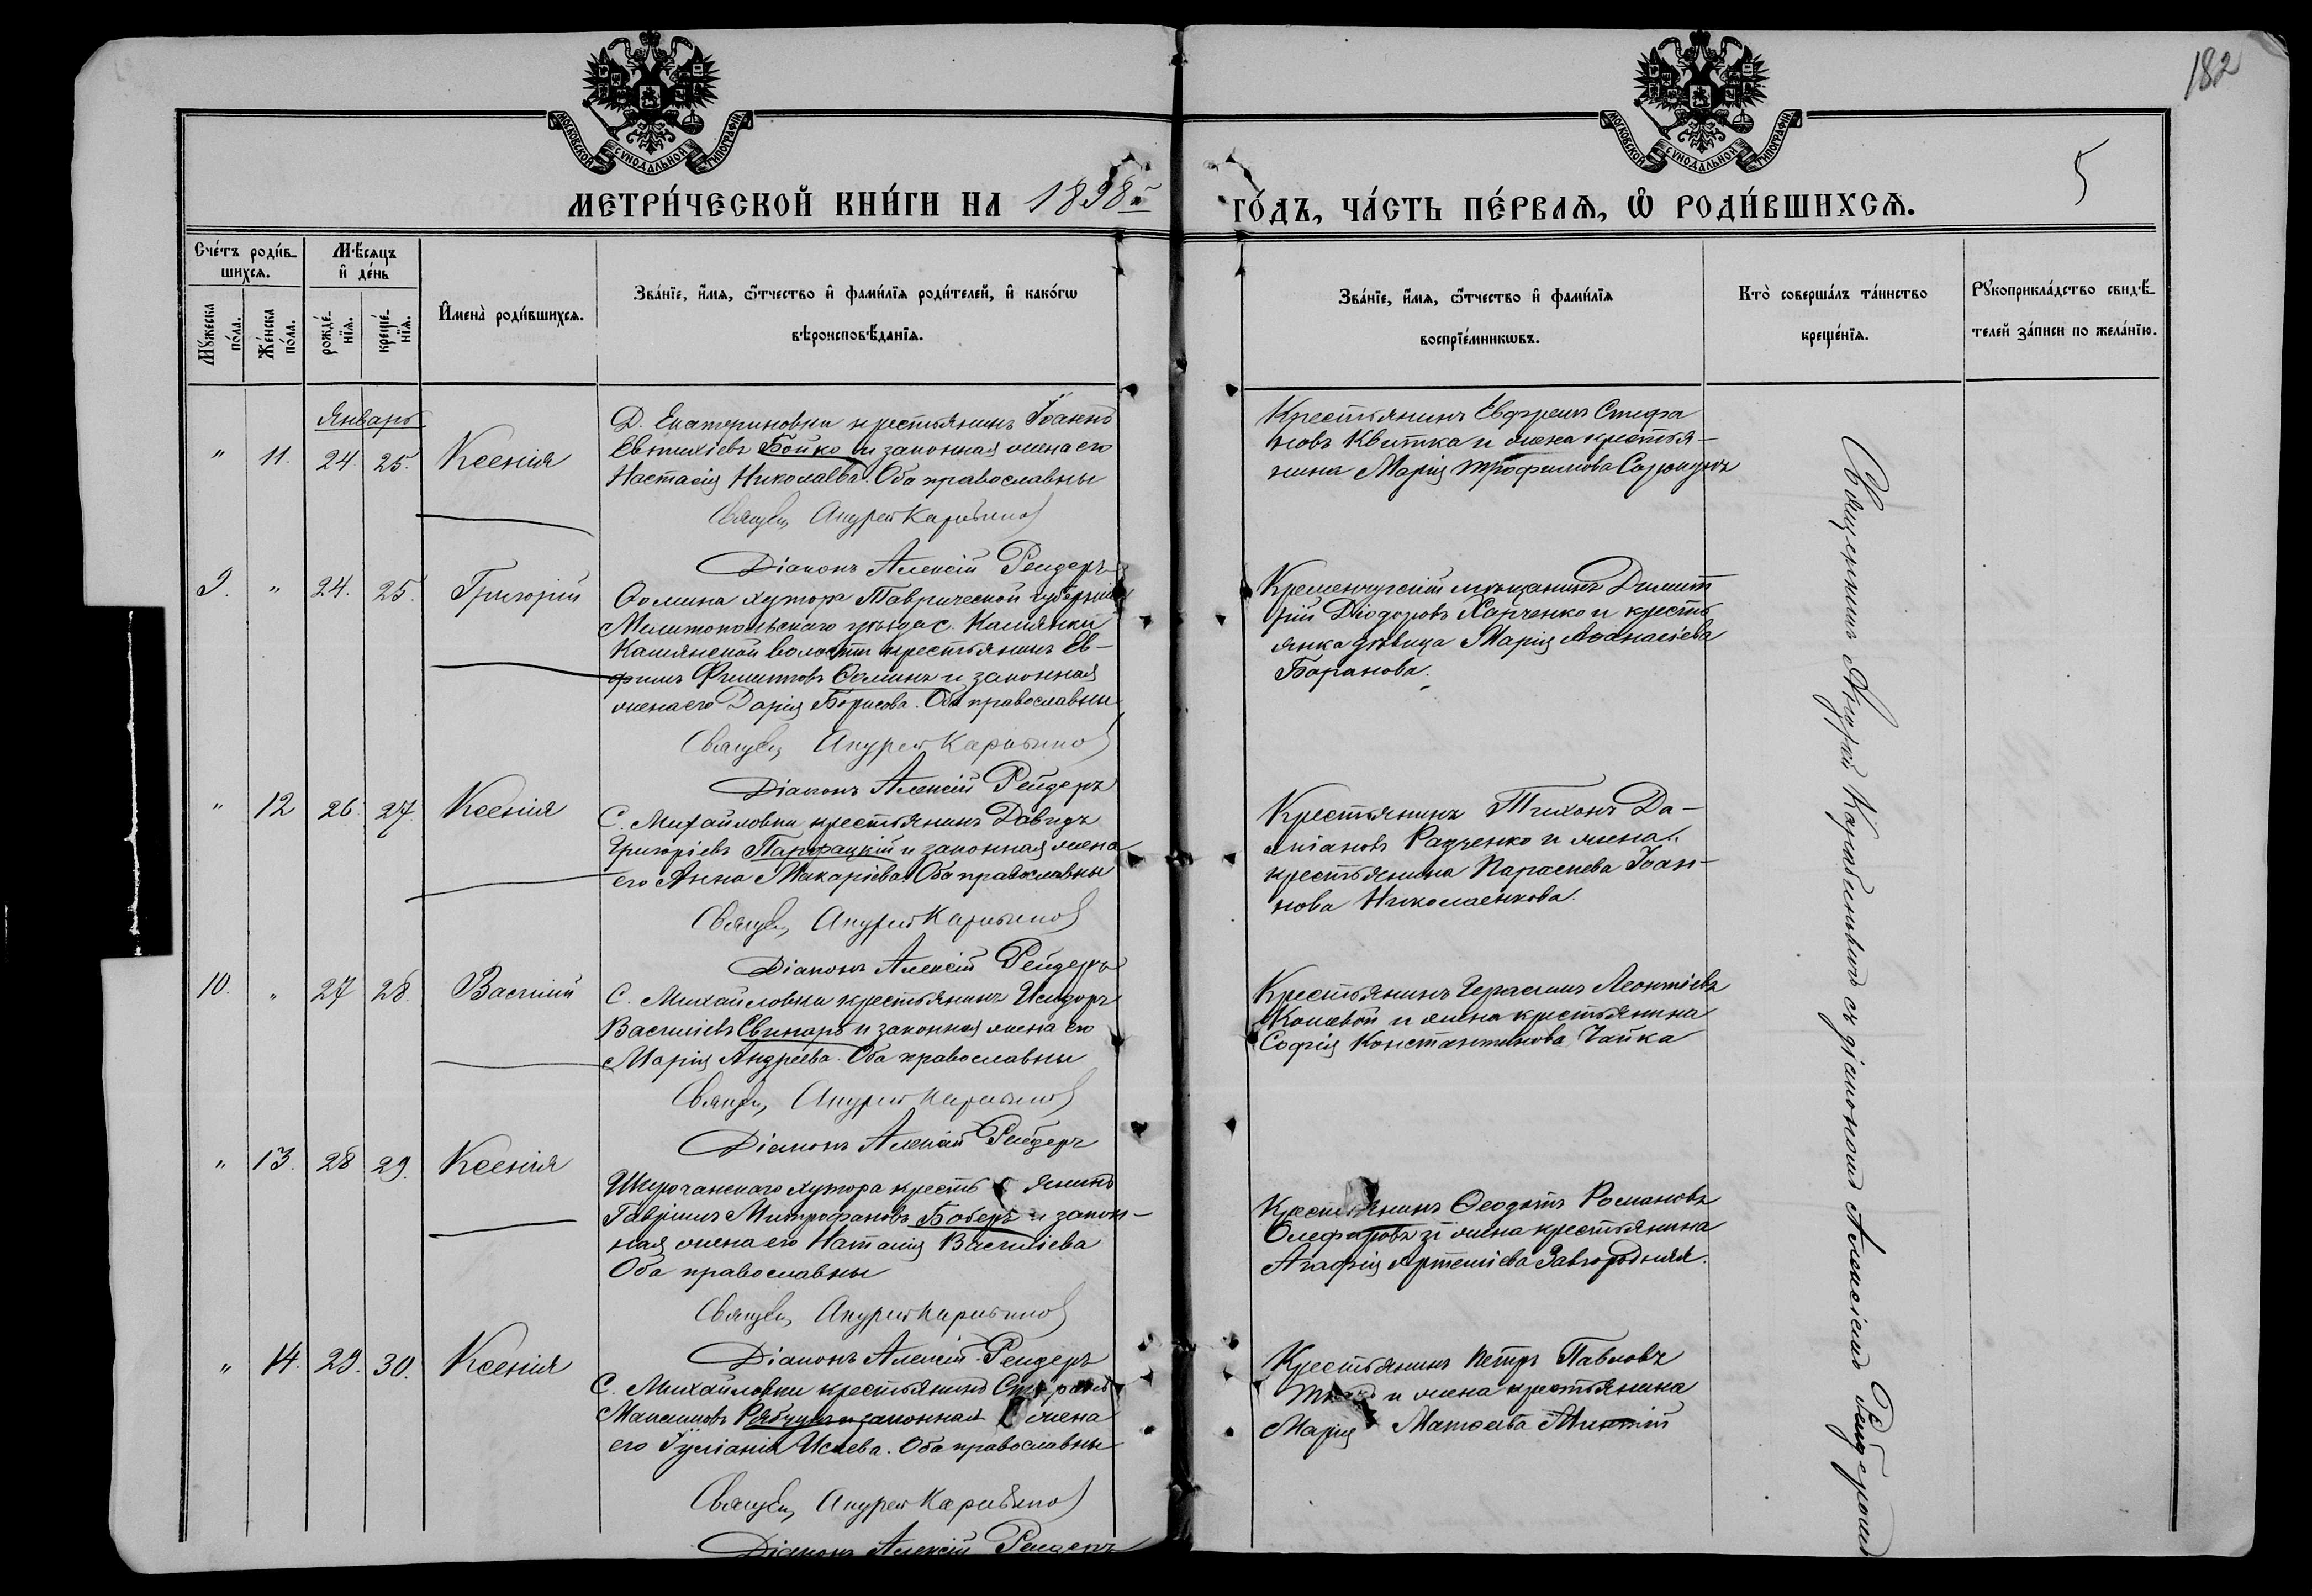 182
5
МОСКОВСКОЙ СѴНОДАЛЬНОЙ ТИПОГРАФІИ
МОСКОВСКОЙ СѴНОДАЛЬНОЙ ТИПОГРАФІИ
МЕТРИ́ЧЕСКОЙ КНИ́ГИ НА 1898й
ГО́ДЪ, ЧА́СТЬ ПЕ́РВАѦ, Ѽ РОДИ́ВШИХСѦ.
Сче́тъ роди́в-
шихсѧ.
Мꙋ́жеска по́ла.
Же́нска по́ла.
Мѣ́сѧцъ
и҆ де́нь
рожде́-
нїѧ.
креще́-
нїѧ.
И҆мена̀ роди́вшихсѧ.
Зва́нїе, и҆́мѧ, ѻ҆́тчество и҆ фами́лїѧ роди́телей, и҆ како́гѡ
вѣроисповѣ́данїѧ.
Зва́нїе, и҆́мѧ, ѻ҆́тчество и҆ фами́лїѧ
воспрїе́мникѡвъ.
Кто̀ соверша́лъ та́инство
креще́нїѧ.
Рꙋкоприкла́дство свидѣ́-
телей за́писи по жела́нїю.
Январь
" 11. 24. 25. Ксенія
Д. Екатериновки крестьянинъ Іоаннъ
Евтихіевъ Бойко и законная жена его
Настасія Николаева. Оба православны
Священ. Андрей
Діаконъ Алексій Рендеръ
Крестьянинъ Евфремъ Стефа
новъ Квитка и жена крестья-
нина Марія Трофимова
9. " 24. 25. Григорій
Ѳомина хутора Таврической губерніи
Мелитопольскаго уѣзда с. Камянки
Камянской волости крестьянинъ Ев-
фимъ Ѳоминъ и законная
жена его Дарія Борисова. Оба православны
Священ. Андрей
Діаконъ Алексій Рендеръ
Кременчугскій мѣщанинъ Димит
рій Діодоровъ Харченко и кресть
янка дѣвица Марія Аѳанасіева
Баранова.
" 12 26. 27. Ксенія
С. Михайловки крестьянинъ Давидъ
Григоріевъ и законная жена
его Анна Макаріева. Оба православны
Священ. Андрей
Діаконъ Алексій Рендеръ
Крестьянинъ Тихонъ Да-
міановъ Радченко и жена
крестьянина Параскева Іоан-
нова Николаенкова.
10. " 27 28. Василій
С. Михайловки крестьянинъ Исидоръ
Василіевъ Свинарь и законная жена его
Марія Андреева. Оба православны
Священ. Андрей
Діаконъ Алексій Рендеръ
Крестьянинъ Герасимъ Леонтіевъ
Кошевой и жена крестьянина
Софія Константинова Чайка
" 13. 28 29. Ксенія
хутора крестьянинъ
Гавріилъ Митрофановъ Боберъ и закон-
ная жена его Наталія Василіева
Оба православны
Священ. Андрей
Діаконъ Алексій Рендеръ
Крестьянинъ Ѳеодотъ Романовъ
Олефировъ и жена крестьянина
Агафія Артеміева Завгородняя.
" 14. 29. 30. Ксенія
С. Михайловки крестьянинъ
Максимовъ и законная жена
его Іуліанія Исаева. Оба православны
Священ. Андрей
Діаконъ Алексій Рендеръ
Крестьянинъ Петръ Павловъ
и жена крестьянина
Марія Матѳеева
Священникъ Андрей съ діакономъ Алексіемъ Рендеромъ